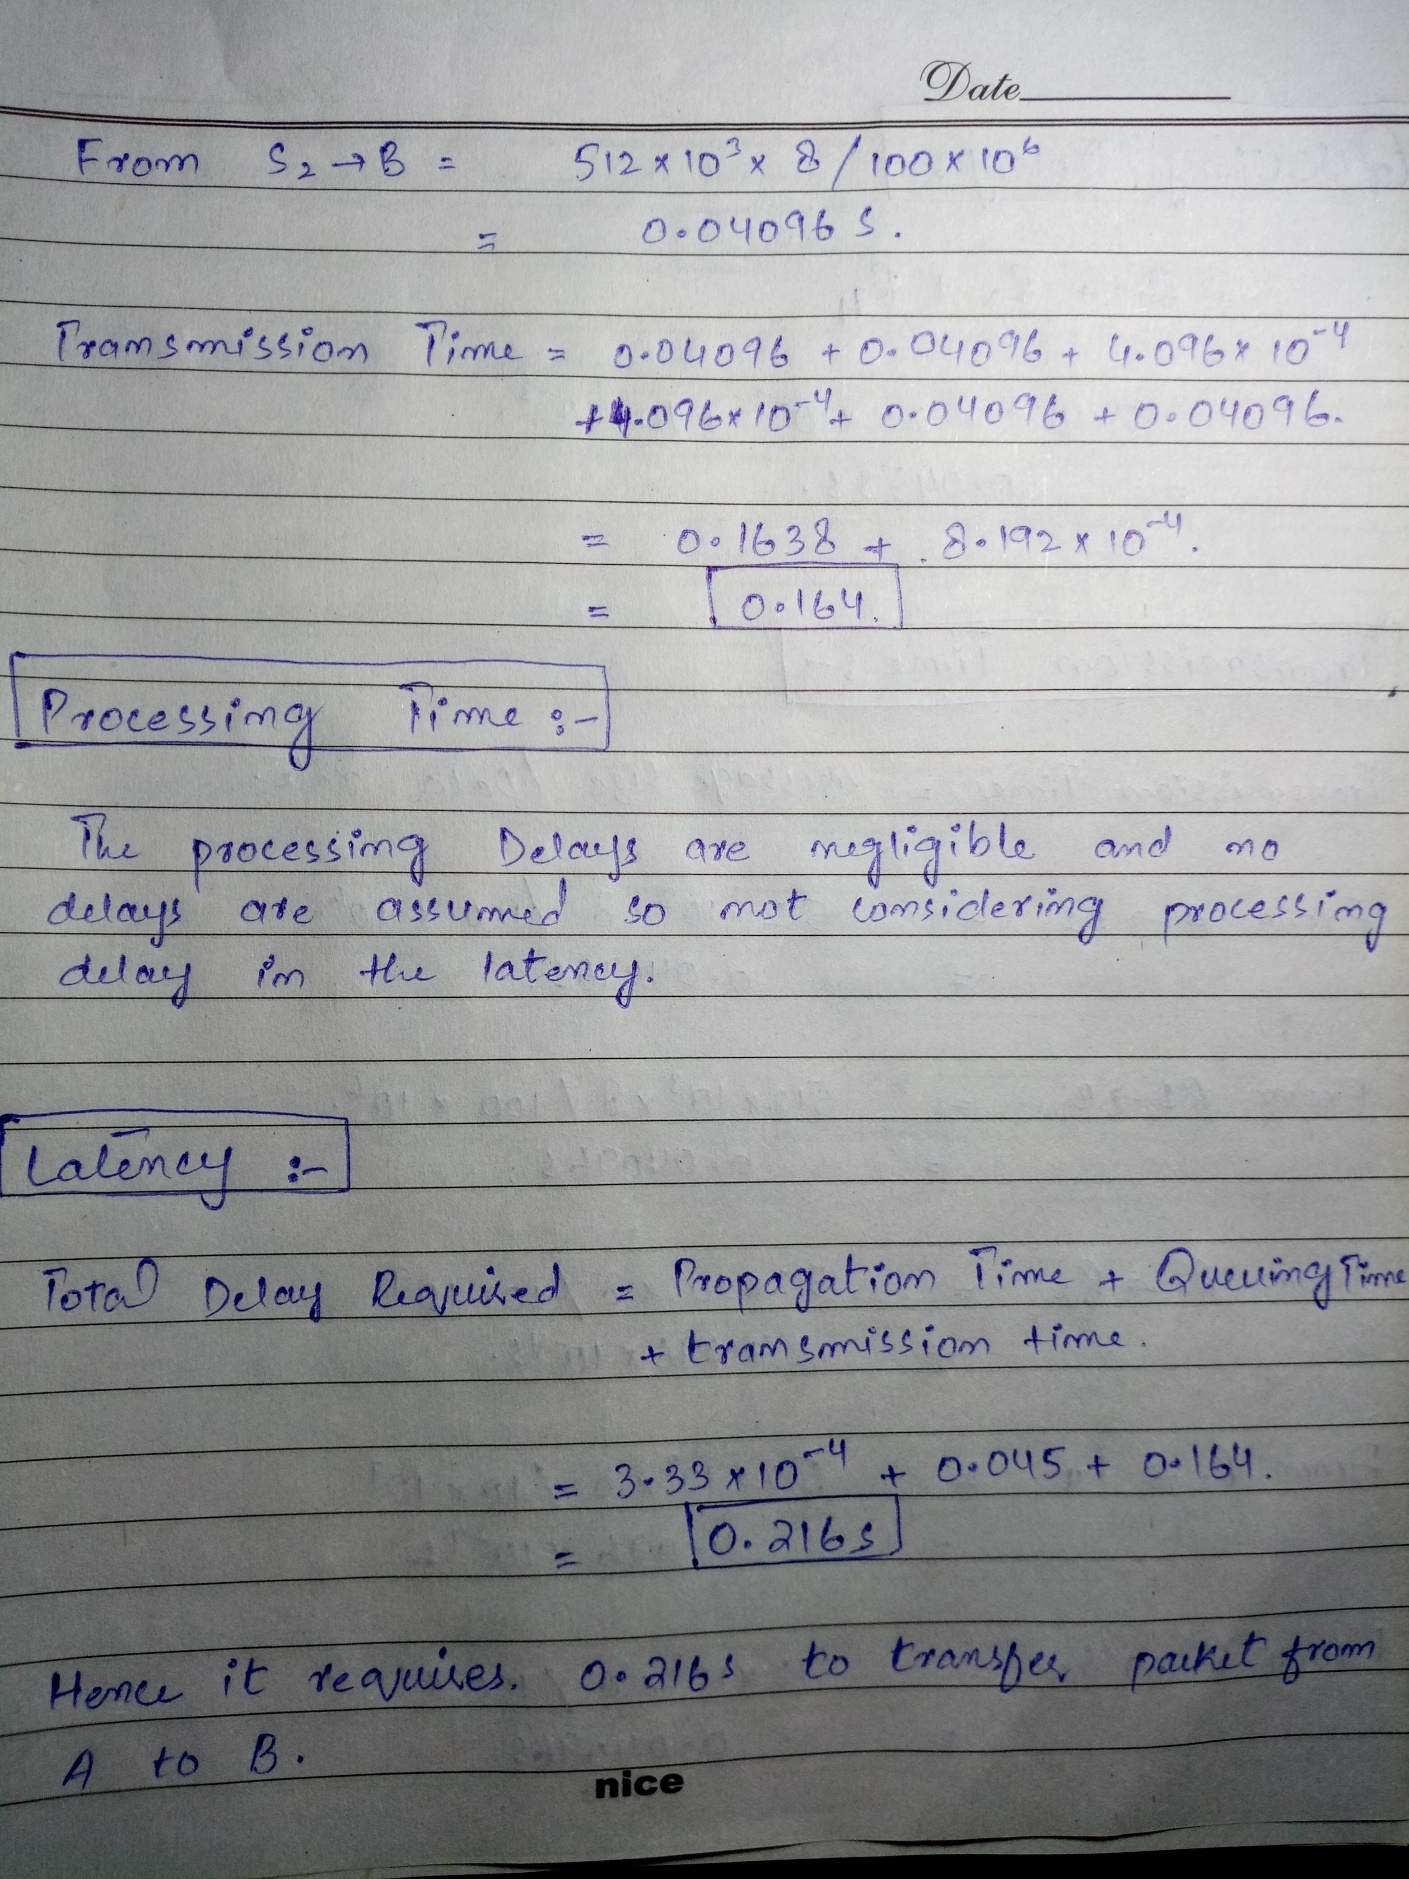 Date
From S₂ → B = 512 × 10³ × 8 / 100 × 10⁶
= 0.04096 s.
Transmission Time = 0.04096 + 0.04096 + 4.096 × 10⁻⁴
+ 4.096 × 10⁻⁴ + 0.04096 + 0.04096.
= 0.1638 + 8.192 × 10⁻⁴.
= 0.164.
Processing Time :-
The processing Delays are negligible and no
delays are assumed so not considering processing
delay in the latency.
Latency :-
Total Delay Required = Propagation Time + Queuing Time
+ transmission time.
= 3.33 × 10⁻⁴ + 0.045 + 0.164.
= 0.216 s
Hence it requires. 0.216 s to transfer packet from
A to B.
nice